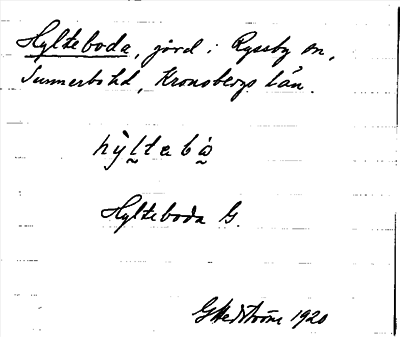 Hylteboda, jord i Ryssby sn,
Sunnerbo hd, Kronobergs län.
hy̆ltabo
Hylteboda G.
G Hedström 1920